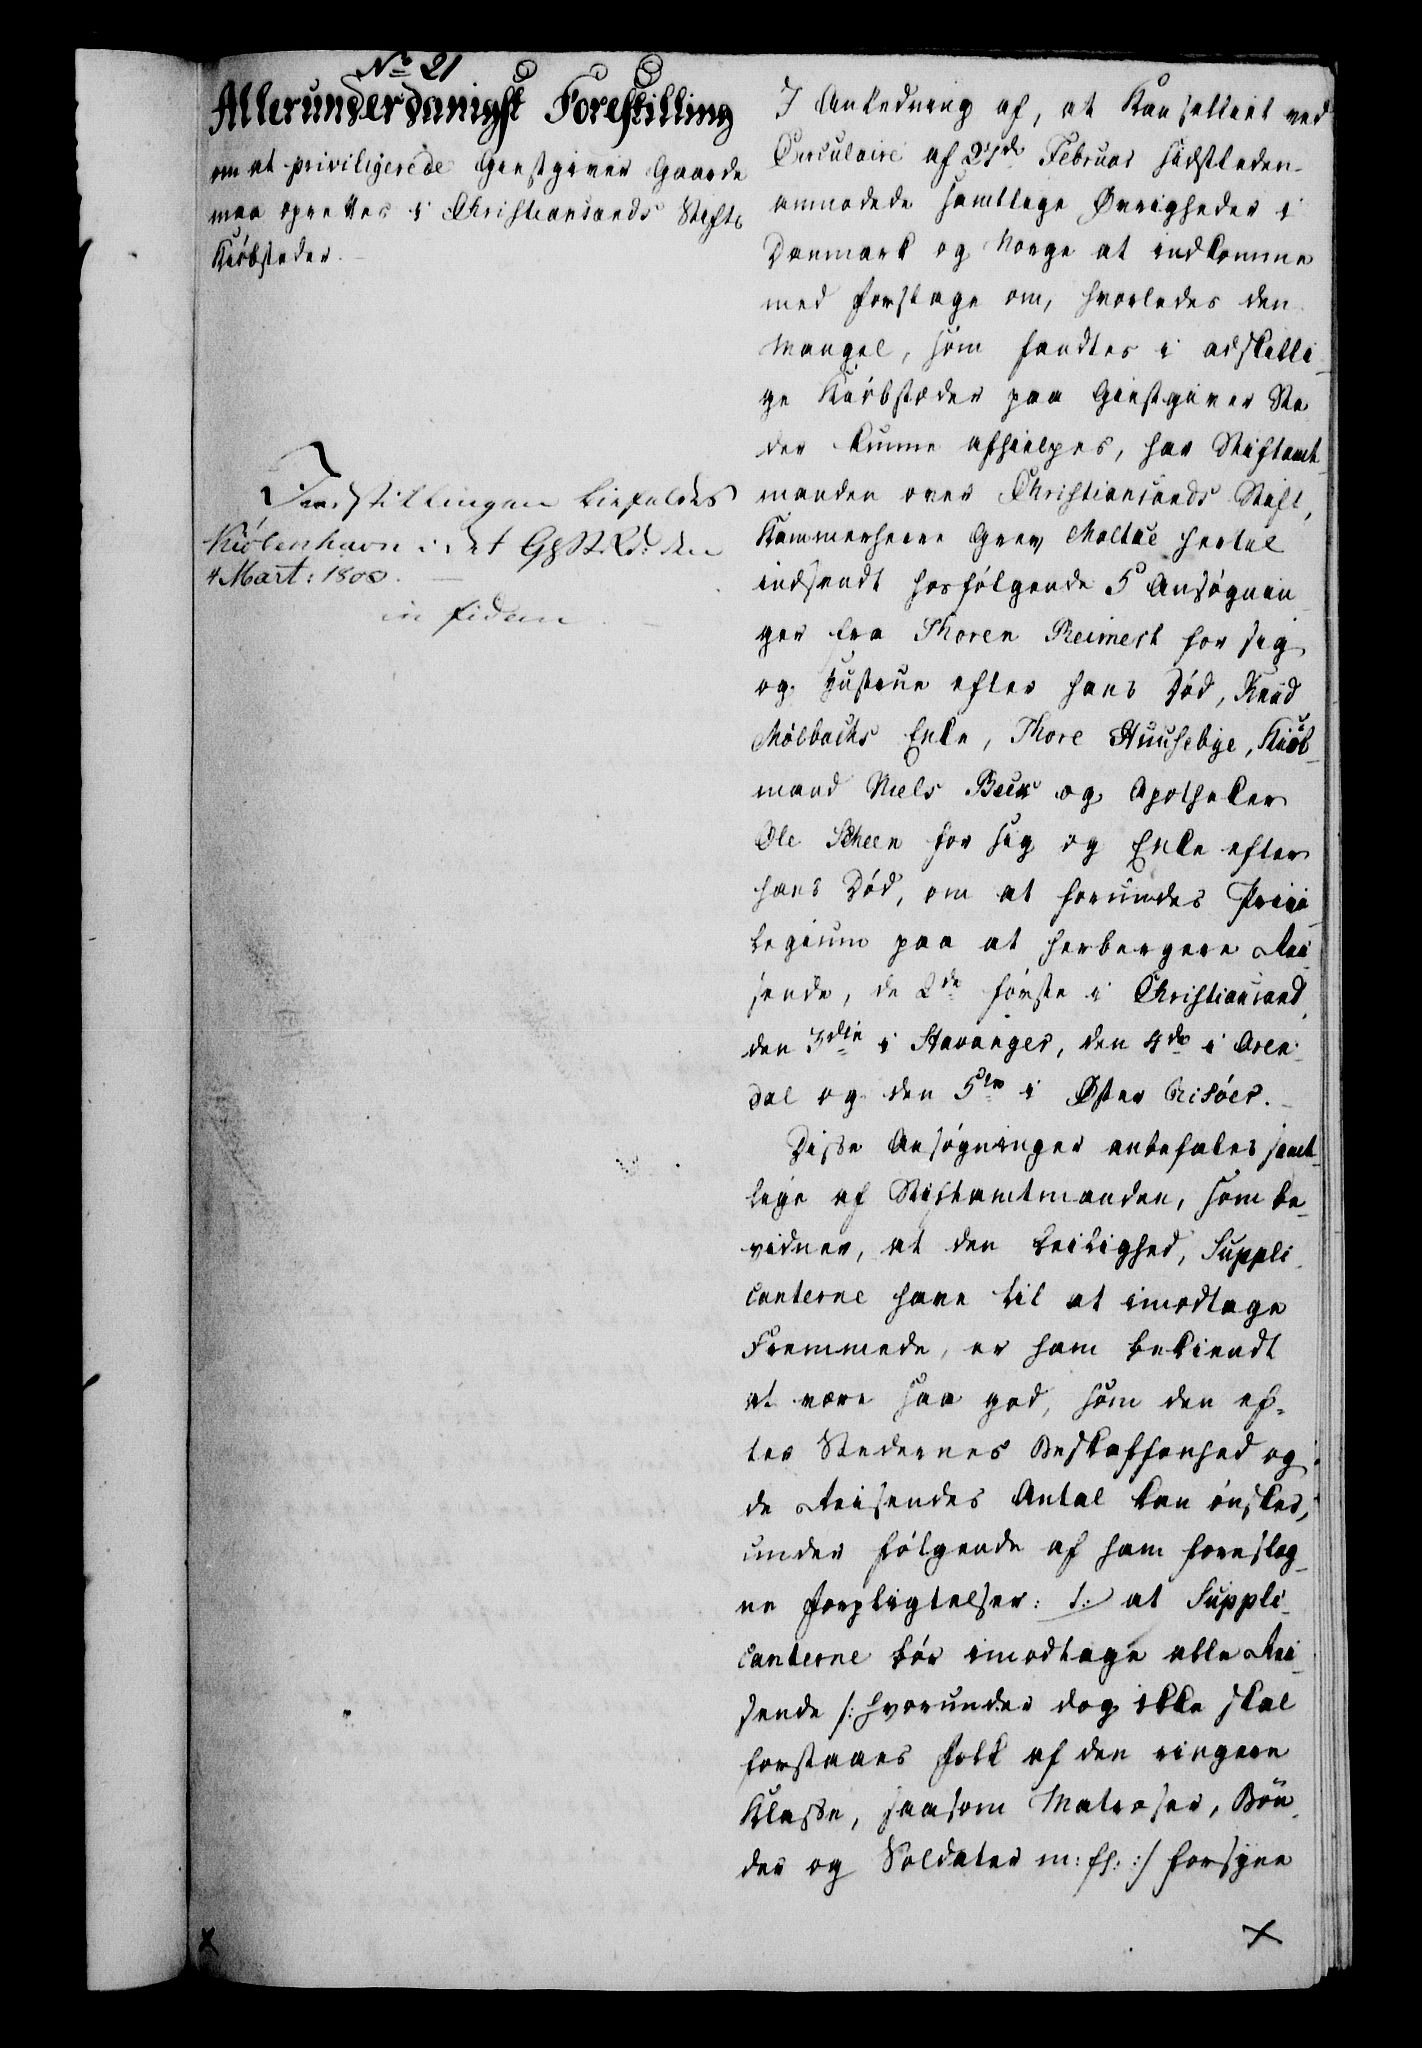 No 21
Allerunderdanigst Forestilling
om at priviligerede Giestgiver Gaarde
maa oprettes i Christiansands Stifts
Kiöbstæder.
Forestillingen bifaldes
Kiöbenhavn i det G. St. R. den
4 Mart: 1800.
in fidem
I Anledning af, at Kancelliet ved
Circulaire af 27de Februar sidstleden
anmodede samtlige Øvrigheder i
Danmark og Norge at indkomme
med Forslage om, hvorledes den
Mangel, som fandtes i adskilli-
ge Kiöbstæder paa Giestgiver Ste
der kunne afhielpes, har Stiftamt-
manden over Christiansands Stift,
Kammerherre Grev Moltke hertil
indsendt hosfölgende 5 Ansögnin-
ger fra Thoren Reimert for sig
og Hustrue efter hans Död, Knud
Mölbachs Enke, Thore Huusebye, Kiöb-
mand Niels Beck og Apotheker
Ole Scheen for sig og Enke efter
hans Död, om at forundes Privi-
legium paa at herbergere Rei-
sende, de 2de förste i Christiansand,
den 3die i Stavanger, den 4de i Aren-
dal og den 5te i Øster Riisöer.
Disse Ansögninger anbefales samt-
lige af Stiftamtmanden, som be-
vidner, at den Leilighed, Suppli-
canterne have til at imodtage
Fremmede, er ham bekiendt
at være saa god, som den ef-
ter Stedernes Beskaffenhed og
de Reisendes Antal kan önskes,
under fölgende af ham foreslag-
ne Forpligtelser: 1.) at Suppli-
canterne bör imodtage alle Rei-
sende /: hvorunder dog ikke skal
forstaaes Folk af den ringere
Klasse, saasom Matroser, Bön-
der og Soldater m: fl: :/ forsyne